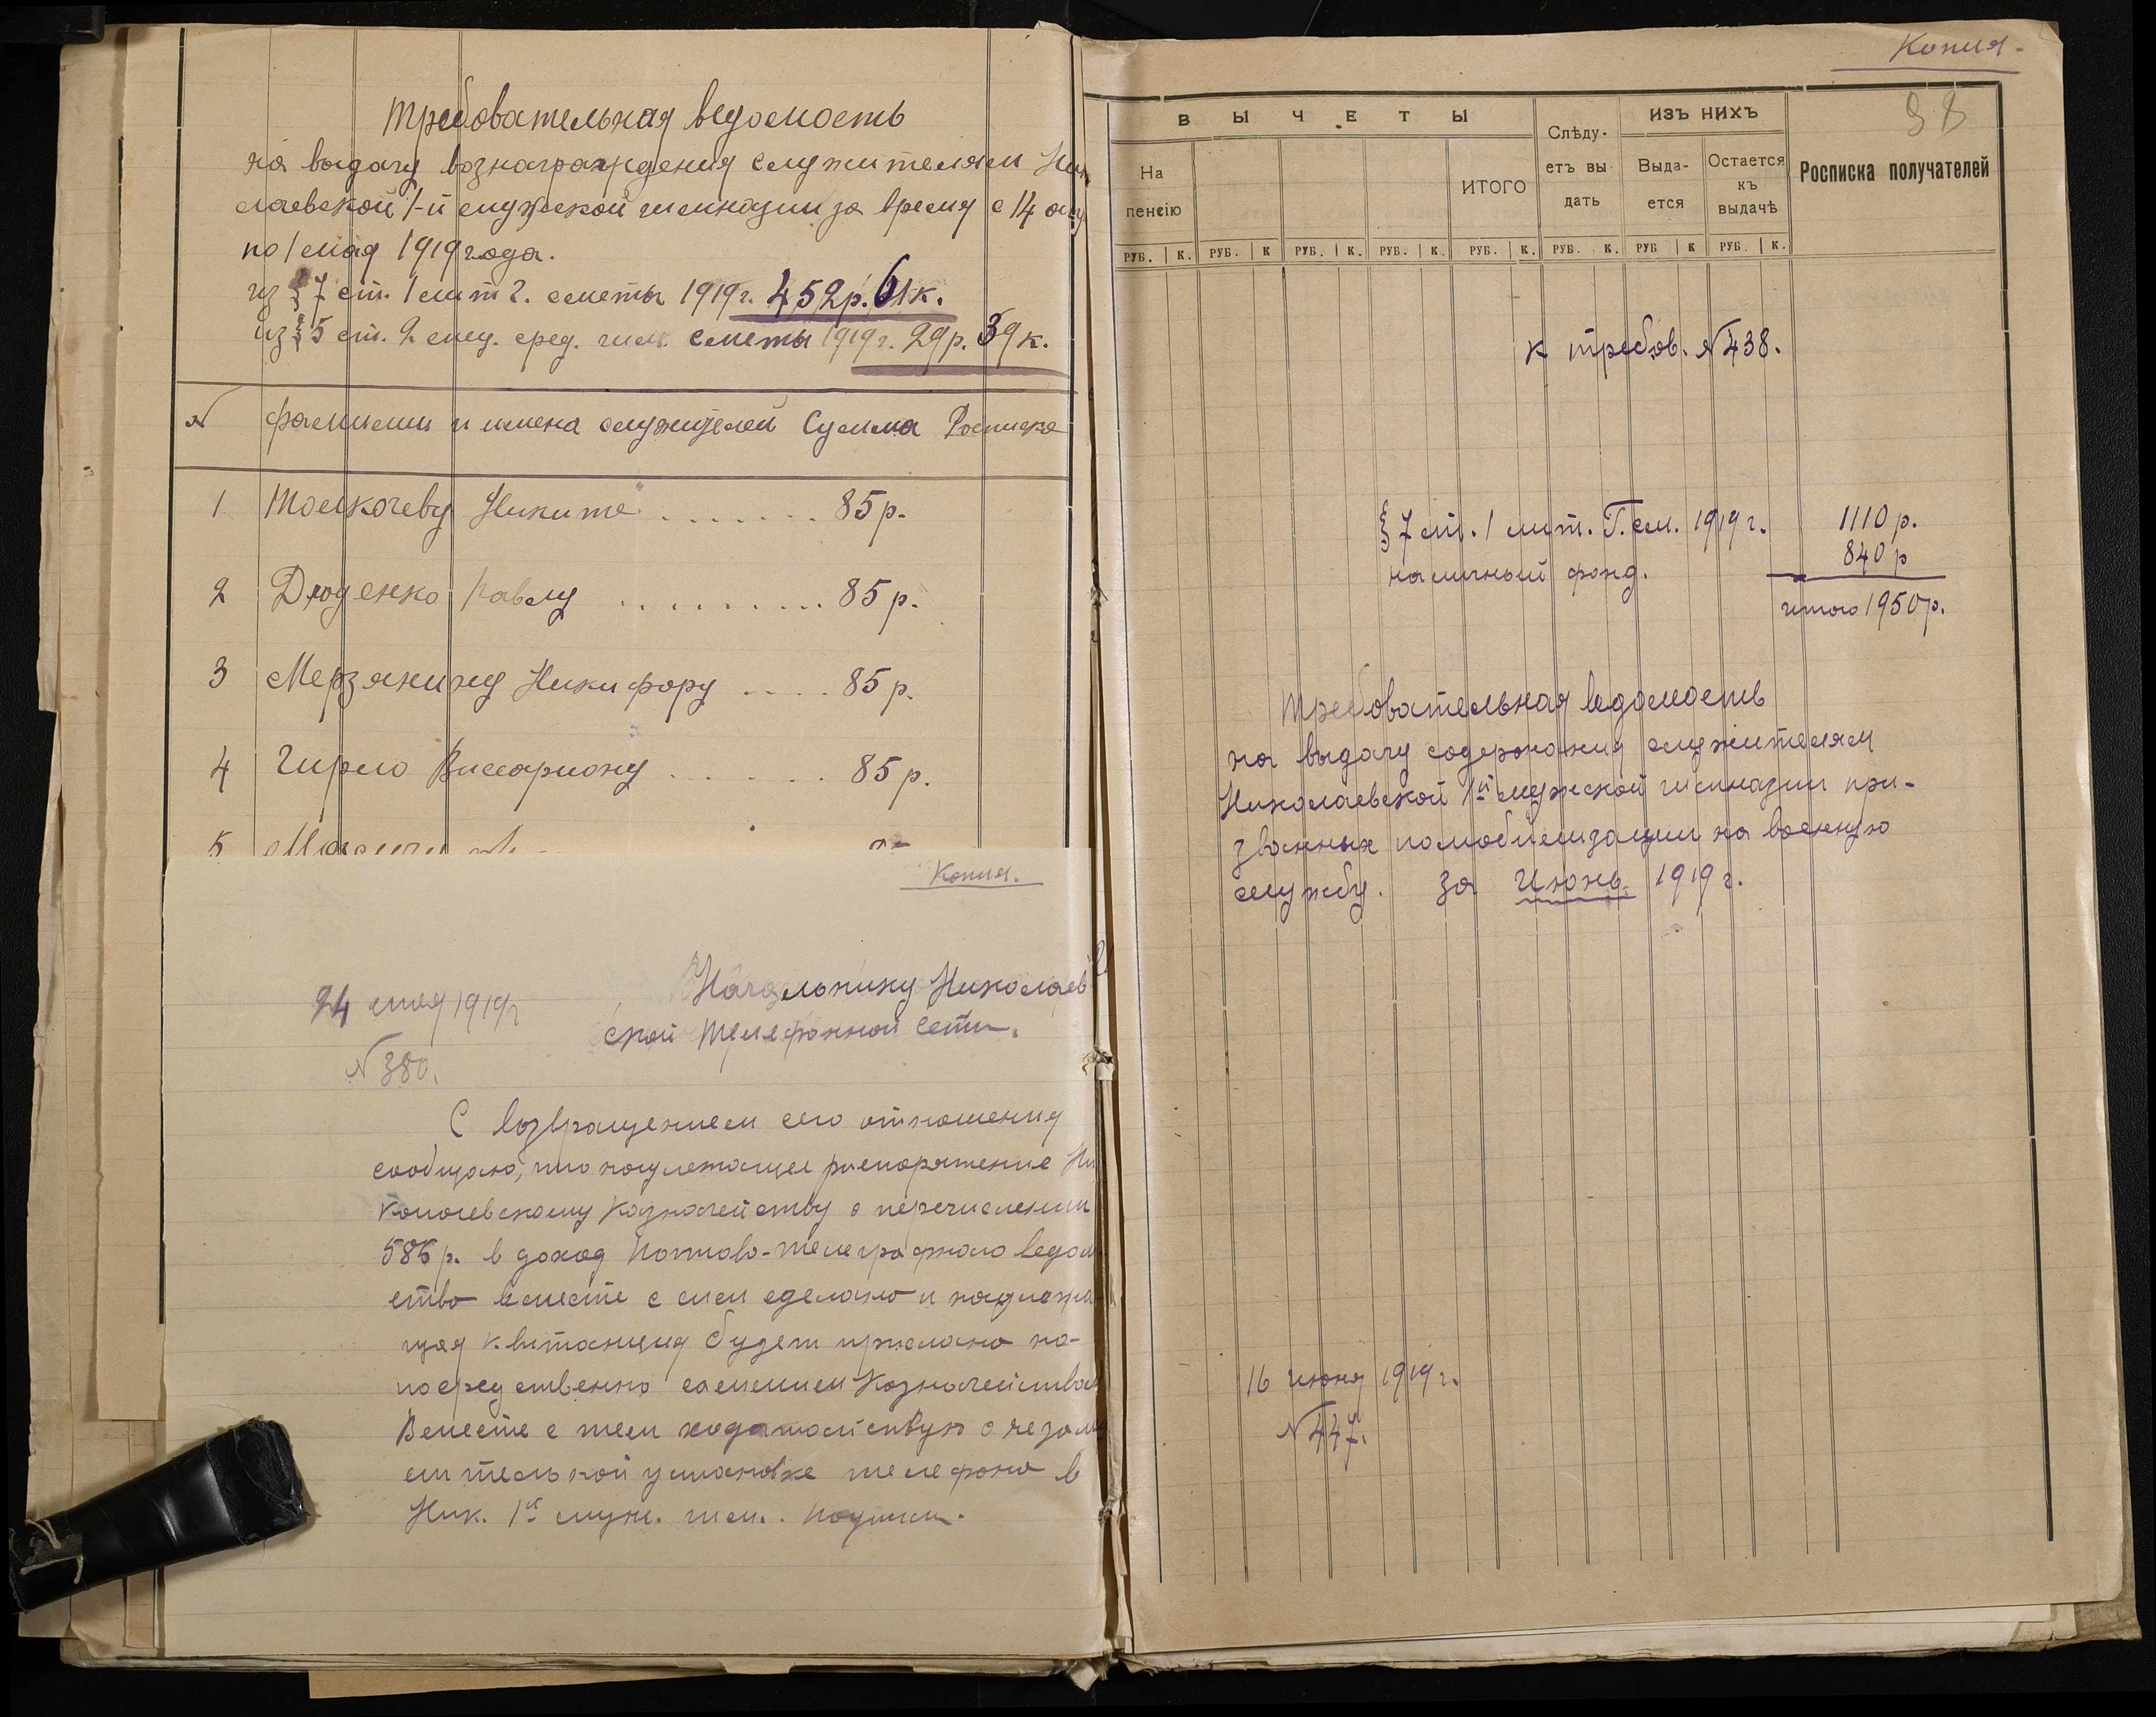 Требовательная ведомость
на выдачу вознаграждения служителям Ник
лаевской 1-й мужской гимназии за время с 14
по 1 мая 1919 года.
из § 7 ст. 1 лит г. сметы 1919 г. 452 р. 61 к.
из § 5 ст. 2 спец. сред. гим сметы 1919 г. 29 р. 39 к.
№ фамилии и имена служителей Сумма Росписка
1 Толкачеву Никите ....... 85 р.
2 Дюденко Павлу .......... 85 р.
3 Мерзяницу Никифору ..... 85 р.
4 Чирго Виссариону ...... 85 р.
5
Копия.
Начальнику Николаев
ской телефонной сети.
24 мая 1919 г
№ 380.
С возвращением сего отношения
сообщаю, что надлежащее распоряжение Ни
колаевскому Казначейству о перечислении
585 р. в доход Почтово-телеграфного ведом
ства вместе с сим сделано и надлежа-
щая квитанция будет прислана не-
посредственно самим Казначейством
Вместе с тем ходатайствую о незаме
длительной установке телефона в
Ник. 1й муж. гим. Подписи.
Копия.
98
ВЫЧЕТЫ
На пенсію
ИТОГО
Слѣду-
етъ вы
дать
ИЗЪ НИХЪ
Выда-
ется
Остается
къ
выдачѣ
Росписка получателей
РУБ. К. РУБ. К РУБ. К. РУБ. К. РУБ. К. РУБ. К. РУБ К РУБ. К.
к требов. № 438.
§ 7 ст. 1 лит. Г. см. 1919 г. 1110 р.
наличный фонд. 840 р
итого 1950 р.
Требовательная ведомость
на выдачу содержания служителям
Николаевской 1й мужской гимназии при-
званных по мобилизации на военную
службу. за Июнь 1919 г.
16 июня 1919 г.
№ 447.